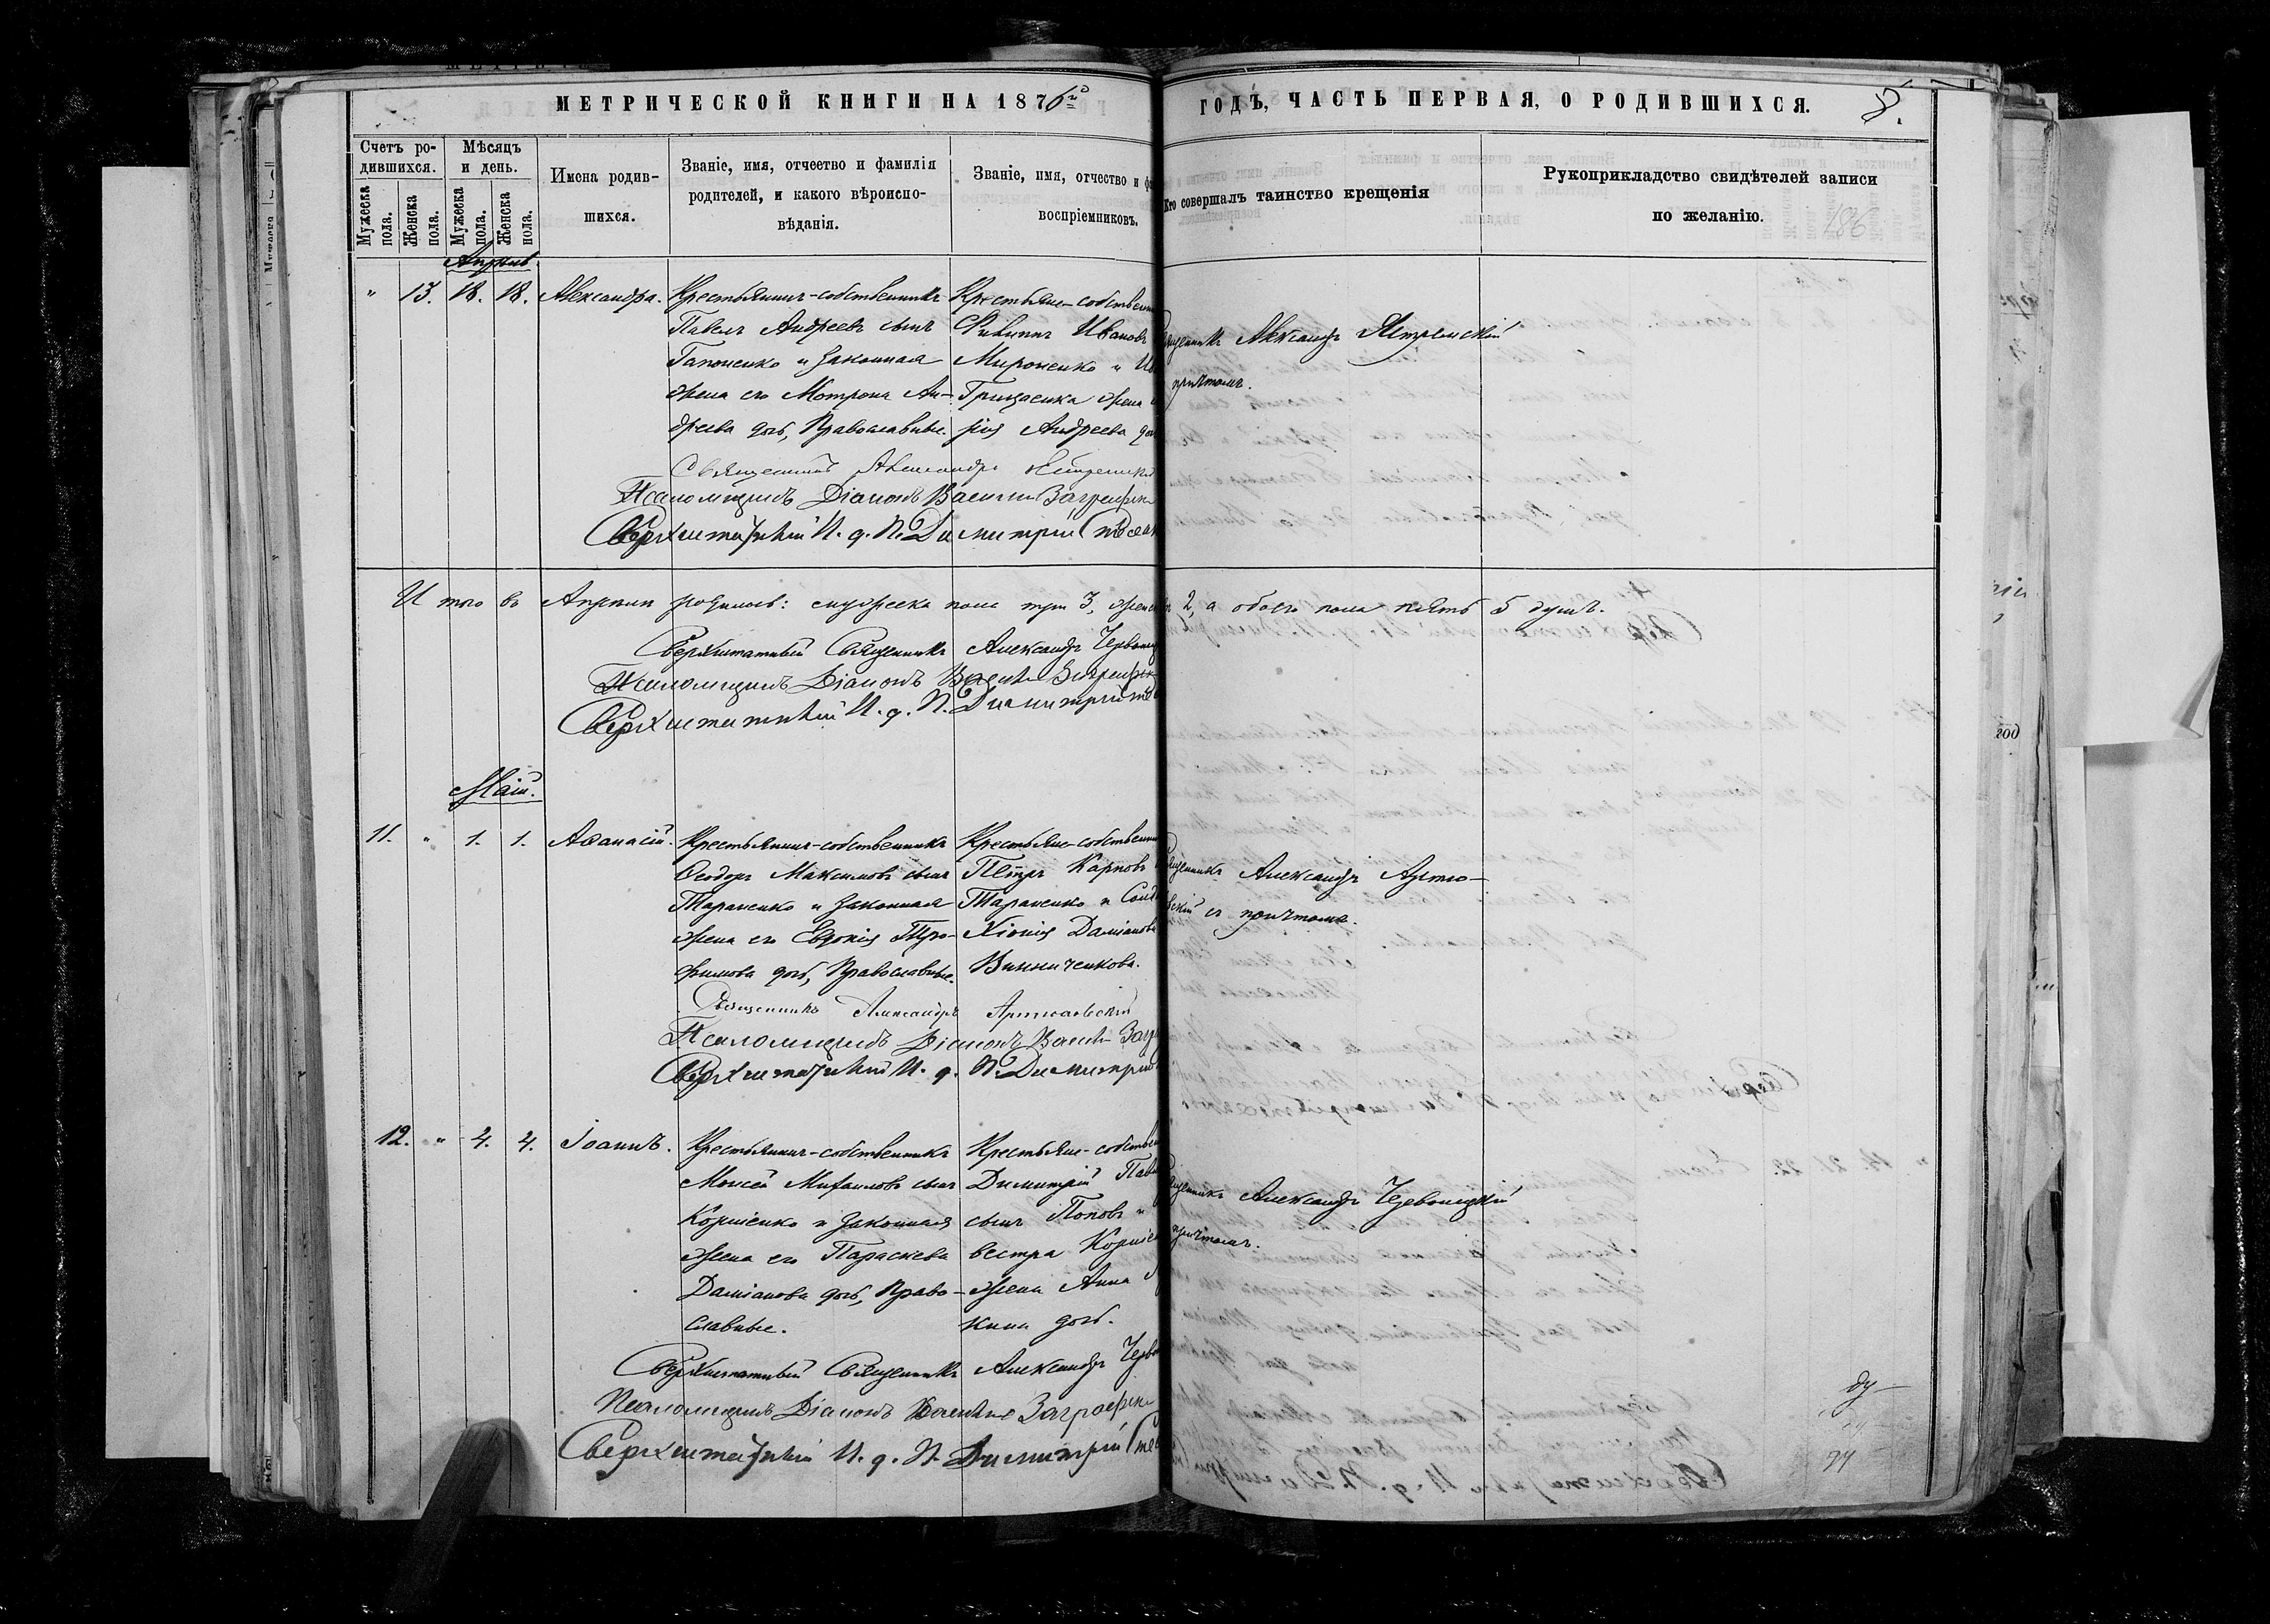 МЕТРИЧЕСКОЙ КНИГИ НА 1876й
ГОДЪ, ЧАСТЬ ПЕРВАЯ, О РОДИВШИХСЯ.
Счетъ ро-
дившихся.
Мужеска
пола.
Женска
пола.
Мѣсяцъ
и день.
Мужеска
пола.
Женска
пола.
Имена родив-
шихся.
Званіе, имя, отчество и фамилія
родителей, и какого вѣроиспо-
вѣданія.
Званіе, имя, отчество и
воспріемниковъ.
Кто совершалъ таинство крещенія
Рукоприкладство свидѣтелей записи
по желанію.
186
Апрѣль.
" 13. 18. 18. Александра.
Крестьянинъ-собственникъ
Павелъ Андреевъ сынъ
Гапоненко и законная
жена его Мотрона Ан-
дреева дочь, Православные.
Крестьяне-собствен
Филиппъ Ивановъ
Мироненко и
Грищенка жена
рія Андреева
щенникъ Александръ
причтомъ.
Священникъ Александръ
Псаломщикъ Діаконъ Василій
Сверхштатный И. д. П. Димитрій
И того въ Апрѣлѣ родилось: мужеска пола три 3, женск 2, а обоего пола пять 5 душъ.
Сверхштатный Священникъ Александръ
Псаломщикъ Діаконъ
Сверхштатный И. д. П. Димитрій
Май.
11. " 1. 1. Аѳанасій.
Крестьянинъ-собственникъ
Ѳеодоръ Максимовъ сынъ
Тараненко и законная
жена его Евдокія Тро-
фимова дочь, Православные.
Крестьяне-собственни
Пётръ Карповъ
Тараненко и Солд
Хіонія Даміанова
Винниченкова.
щенникъ Александръ Артю-
вскій съ причтомъ.
Священникъ Александръ
Псаломщикъ Діаконъ Василій
Сверхштатный И. д. П. Димитрій
12. " 4. 4. Іоаннъ.
Крестьянинъ-собственникъ
Моисей Михаиловъ сынъ
Корніенко и законная
жена его Параскева
Даміанова дочь, Право-
славные.
Крестьяне-собствен
Димитрій Пав
сынъ Поповъ и
вестра Корніен
жена Анна
кина дочь.
щенникъ Александръ Червоницкій
причтомъ.
Сверхштатный Священникъ Александръ
Псаломщикъ Діаконъ Василій
Сверхштатный И. д. П. Димитрій